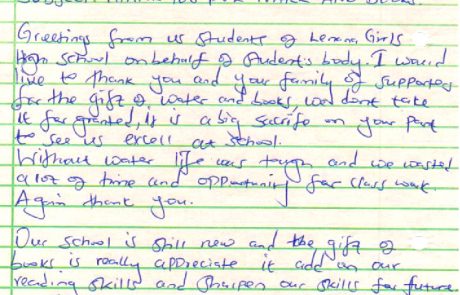 Subject: THANK YOU FOR WATER AND BOOKS.
Greetings from us students of Girls
High School on behalf of students body. I would
like to thank you and your family of supporters
for the gift of water and books, we dont take
it for granted, it is a big sacrife on your part
to see us excell at school.
Without water life was tough and we wasted
a lot of time and opportunity for class work.
Again thank you.
Our school is still new and the gift of
books is really appreciate it add on our
reading skills and sharpen our skills for future